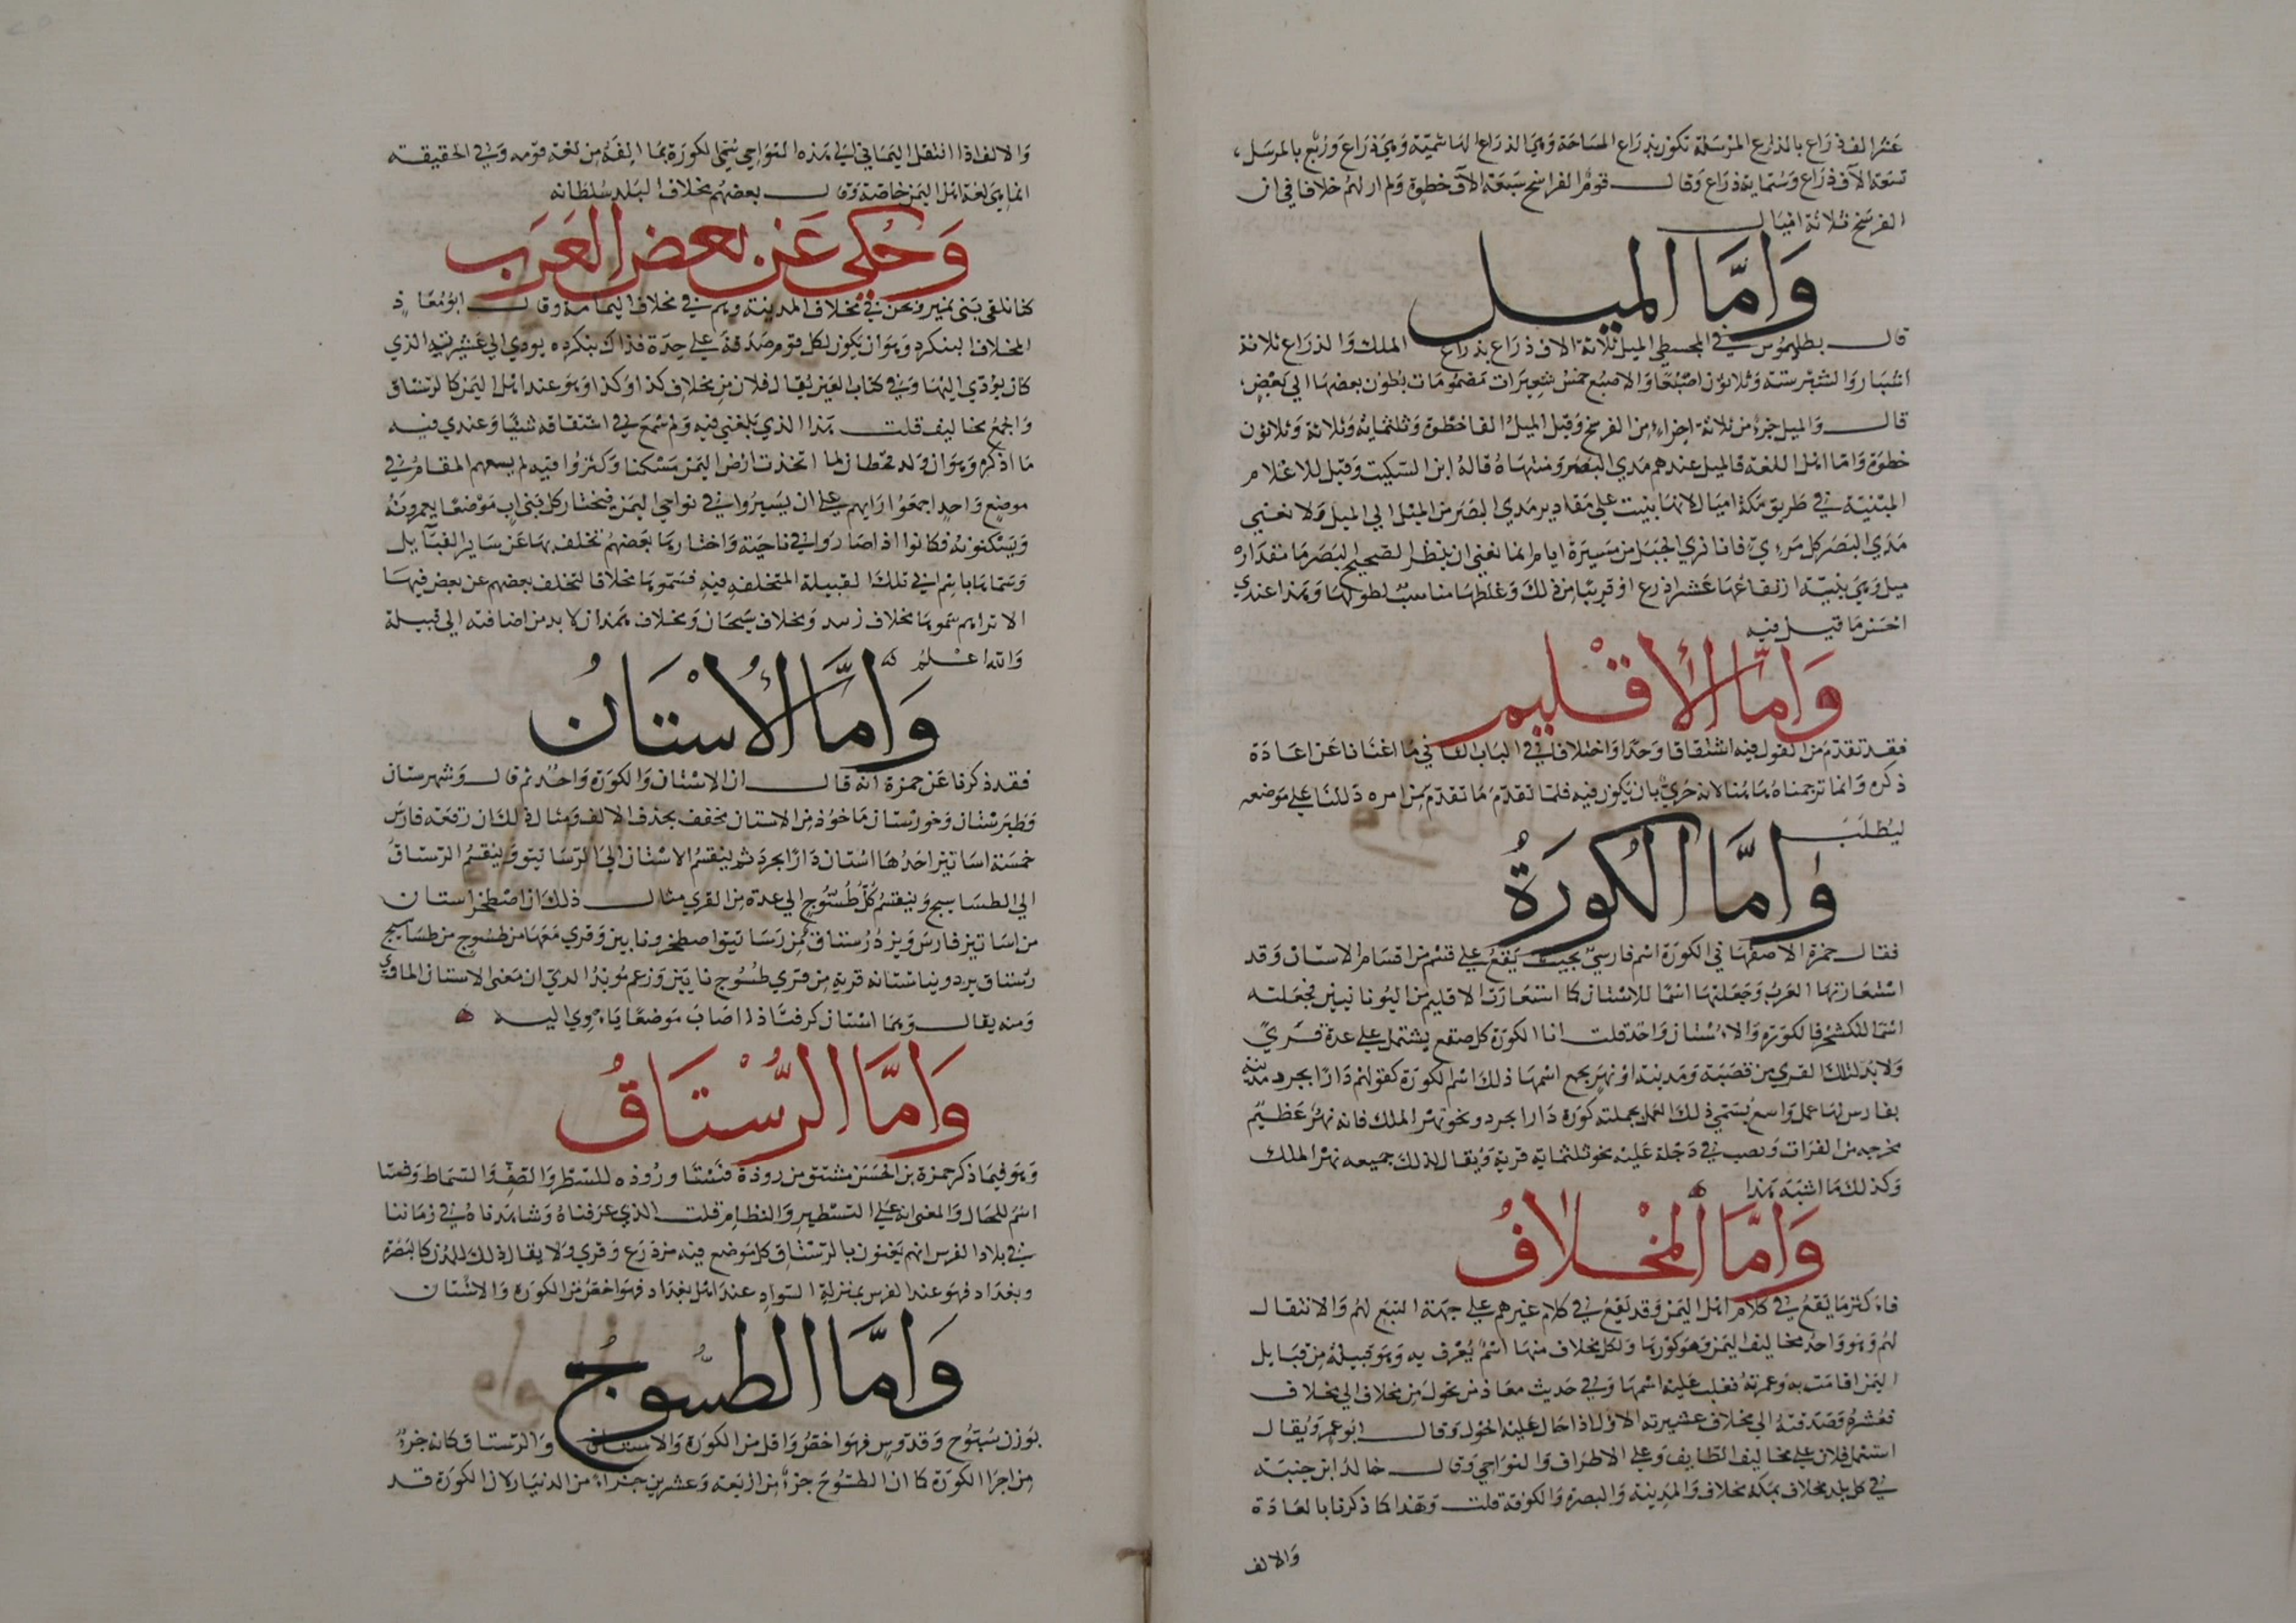 عشر الف ذراع بالذراع المرسلة تكون بذراع المساحة وهي الذراع الهاشمية وهي ذراع وربع بالمرسل،
تسعة الآف ذراع وستماية ذراع وقال قوم الفراسخ سبعة الآف خطوة ولم ار لهم خلافا في ان
الفرسخ ثلاثة اميال
وَامَّا الميل
قال بطليموس في المجسطي الميل ثلاثة الاف ذراع بذراع الملك والذراع ثلاثة
اشبار والشبر ستة وثلاثون اصبعا والاصبع خمس شعيرات مضمومات بطون بعضها الي بعض؛
قال والميل جزء من ثلاثة اجزاء من الفرسخ وقيل الميل الفا خطوة وثلثماية وثلاثة وثلاثون
خطوة واما اهل اللغة فالميل عندهم مدي البصر ومنتهاه قاله ابن السكيت وقيل للاعلام
المبنية في طريق مكة اميال لانها بنيت علي مقادير مدي البصر من الميل الي الميل ولا نعني
مدي البصر كل مرءي فانا نري الجبل من مسيرة ايام انما نعني ان ينظر الصحيح البصر ما مقداره
ميل وهي بنية ارتفاعها عشر اذرع او قريبا من ذلك وغلظها مناسب لطولها وهذا عندي
احسن ما قيل فيه
وَامَّا الأقْليم
فقد تقدم من القول فيه اشتقاقا وحدا واختلافا في الباب الثاني ما اغنانا عن اعادة
ذكره وانما ترجمناه هاهنا لانه حري بان يكون فيه فلما تقدم ما تقدم من امره دللنا علي موضعه
ليطلب
وَامَّا الكُورَةُ
فقال حمزة الاصفهاني الكورة اسم فارسي بحيث يقع علي قسم من اقسام الاستان وقد
استعارتها العرب وجعلتها اسما للاستان كما استعارت الاقليم من اليونانيين فجعلته
اسما للكشخر فالكورة والاستان واحد قلت انا الكورة كل صقع يشتمل علي عدة قري
ولا بد لتلك القري من قصبة ومدينة او نهر يجمع اسمها ذلك اسم الكورة كقولهم دارا بجرد مدينة
بفارس لها عمل واسع يسمي ذلك العمل بجملته كورة دارا بجرد ونحو نهر الملك فانه نهر عظيم
مخرجه من الفرات ويصب في دجلة عليه نحو ثلثماية قرية ويقال لذلك جميعه نهر الملك
وكذلك ما اشبه هذا
وَامَّا المخْلافُ
فاكثر ما يقع في كلام اهل اليمن وقد يقع في كلام غيرهم علي جهة التبع لهم والانتقال
لهم وهو واحد مخاليف اليمن وهو كورها ولكل مخلاف منها اسم يعرف به وهو قبيلة من قبايل
اليمن اقامت به وعمرته فغلب عليه اسمها وفي حديث معاذ من تحول من مخلاف الي مخلاف
فعشره وصدقته الي مخلاف عشيرته الاول اذا حال عليه الحول وقال ابو عمرو يقال
استعمل فلان علي مخاليف الطايف وعلي الاطراف والنواحي وقال خالد ابن جنبة
في كل بلد مخلاف بمكة مخلاف والمدينة والبصرة والكوفة قلت وهذا كما ذكرنا بالعادة
والالف
والالف اذا انتقل اليماني الي هذه النواحي سمي الكورة بما الفه من لغة قومه وفي الحقيقة
انما هي لغة اهل اليمن خاصة وقال بعضهم مخلاف البلد سلطانه
وَحُكي عَن بعض العَرَب
كنا نلقي بني نمير ونحن في مخلاف المدينة وهم في مخلاف اليمامة وقال ابو معاذ
المخلاف البنكرد وهو ان يكون لكل قوم صدقة علي حدة فذاك بنكرده يودي الي عشيرته الذي
كان يؤدي اليها وفي كتاب العين يقال فلان من مخلاف كذا وكذا وهو عند اهل اليمن كالرستاق
والجمع مخاليف قلت هذا الذي بلغني فيه ولم اسمع في اشتقاقه شيئا وعندي فيه
ما اذكره وهو ان ولد قحطان لما اتخذت ارض اليمن مسكنا وكثروا فيه لم يسعهم المقام في
موضع واحد اجمعوا رايهم علي ان يسيروا في نواحي اليمن فيختار كل بني اب موضعا يعمرونه
ويسكنونه فكانوا اذا صاروا في ناحية واختارها بعضهم تخلف بها عن ساير القبآيل
وسماها باسم ابي تلك القبيلة المتخلفه فيه فسموها مخلافا لتخلف بعضهم عن بعض فيها
الا تراهم سموها مخلاف زبيد ومخلاف سيحان ومخلاف همذان لا بد من اضافته الي قبيلة
والله اعلم
وَامَّا الأُسْتَانُ
فقد ذكرنا عن حمزة انه قال ان الاستان والكورة واحد ثم قال وشهرستان
وطبرستان وخوزستان ماخوذ من الاستان مخفف بحذف الالف ومثال ذلك ان رقعة فارس
خمسة اساتين احدها استان دارا بجرد ثم ينقسم الاستان الي الرساتيق وينقسم الرستاق
الي الطساسيج وينقسم كل طسوج الي عدة من القري مثال ذلك ان اصطخر استان
من اساتين فارس ويزد رستاق من رساتيق اصطخر ونايين وقري معها من طسوج من طساسيج
رستاق يزد ونياستانه قرية من قري طسوج نايين وزعم موبذ الري ان معني الاستان الماوي
ومنه يقال وهما استان كرفت اذا اصاب موضعا ياوي اليه
وَامَّا الرُّسْتَاقُ
وهو فيما ذكر حمزة بن الحسن مشتق من روذه فستا وروذه للسطر والصف والسماط وفستا
اسم للحال والمعني انه علي التسطير والنظام قلت الذي عرفناه وشاهدناه في زماننا
في بلاد الفرس انهم يعنون بالرستاق كل موضع فيه مزدرع وقري ولا يقال ذلك للمدن كالبصرة
وبغداد فهو عند الفرس بمنزلة السواد عند اهل بغداد فهو اخص من الكورة والاستان
وَامَّا الطسُّوجُ
بوزن سبوح وقدوس فهو اخص واقل من الكورة والاستان والرستاق كانه جزء
من اجزا الكورة كما ان الطسوج جزء من اربعة وعشرين جزءا من الدنيار لان الكورة قد